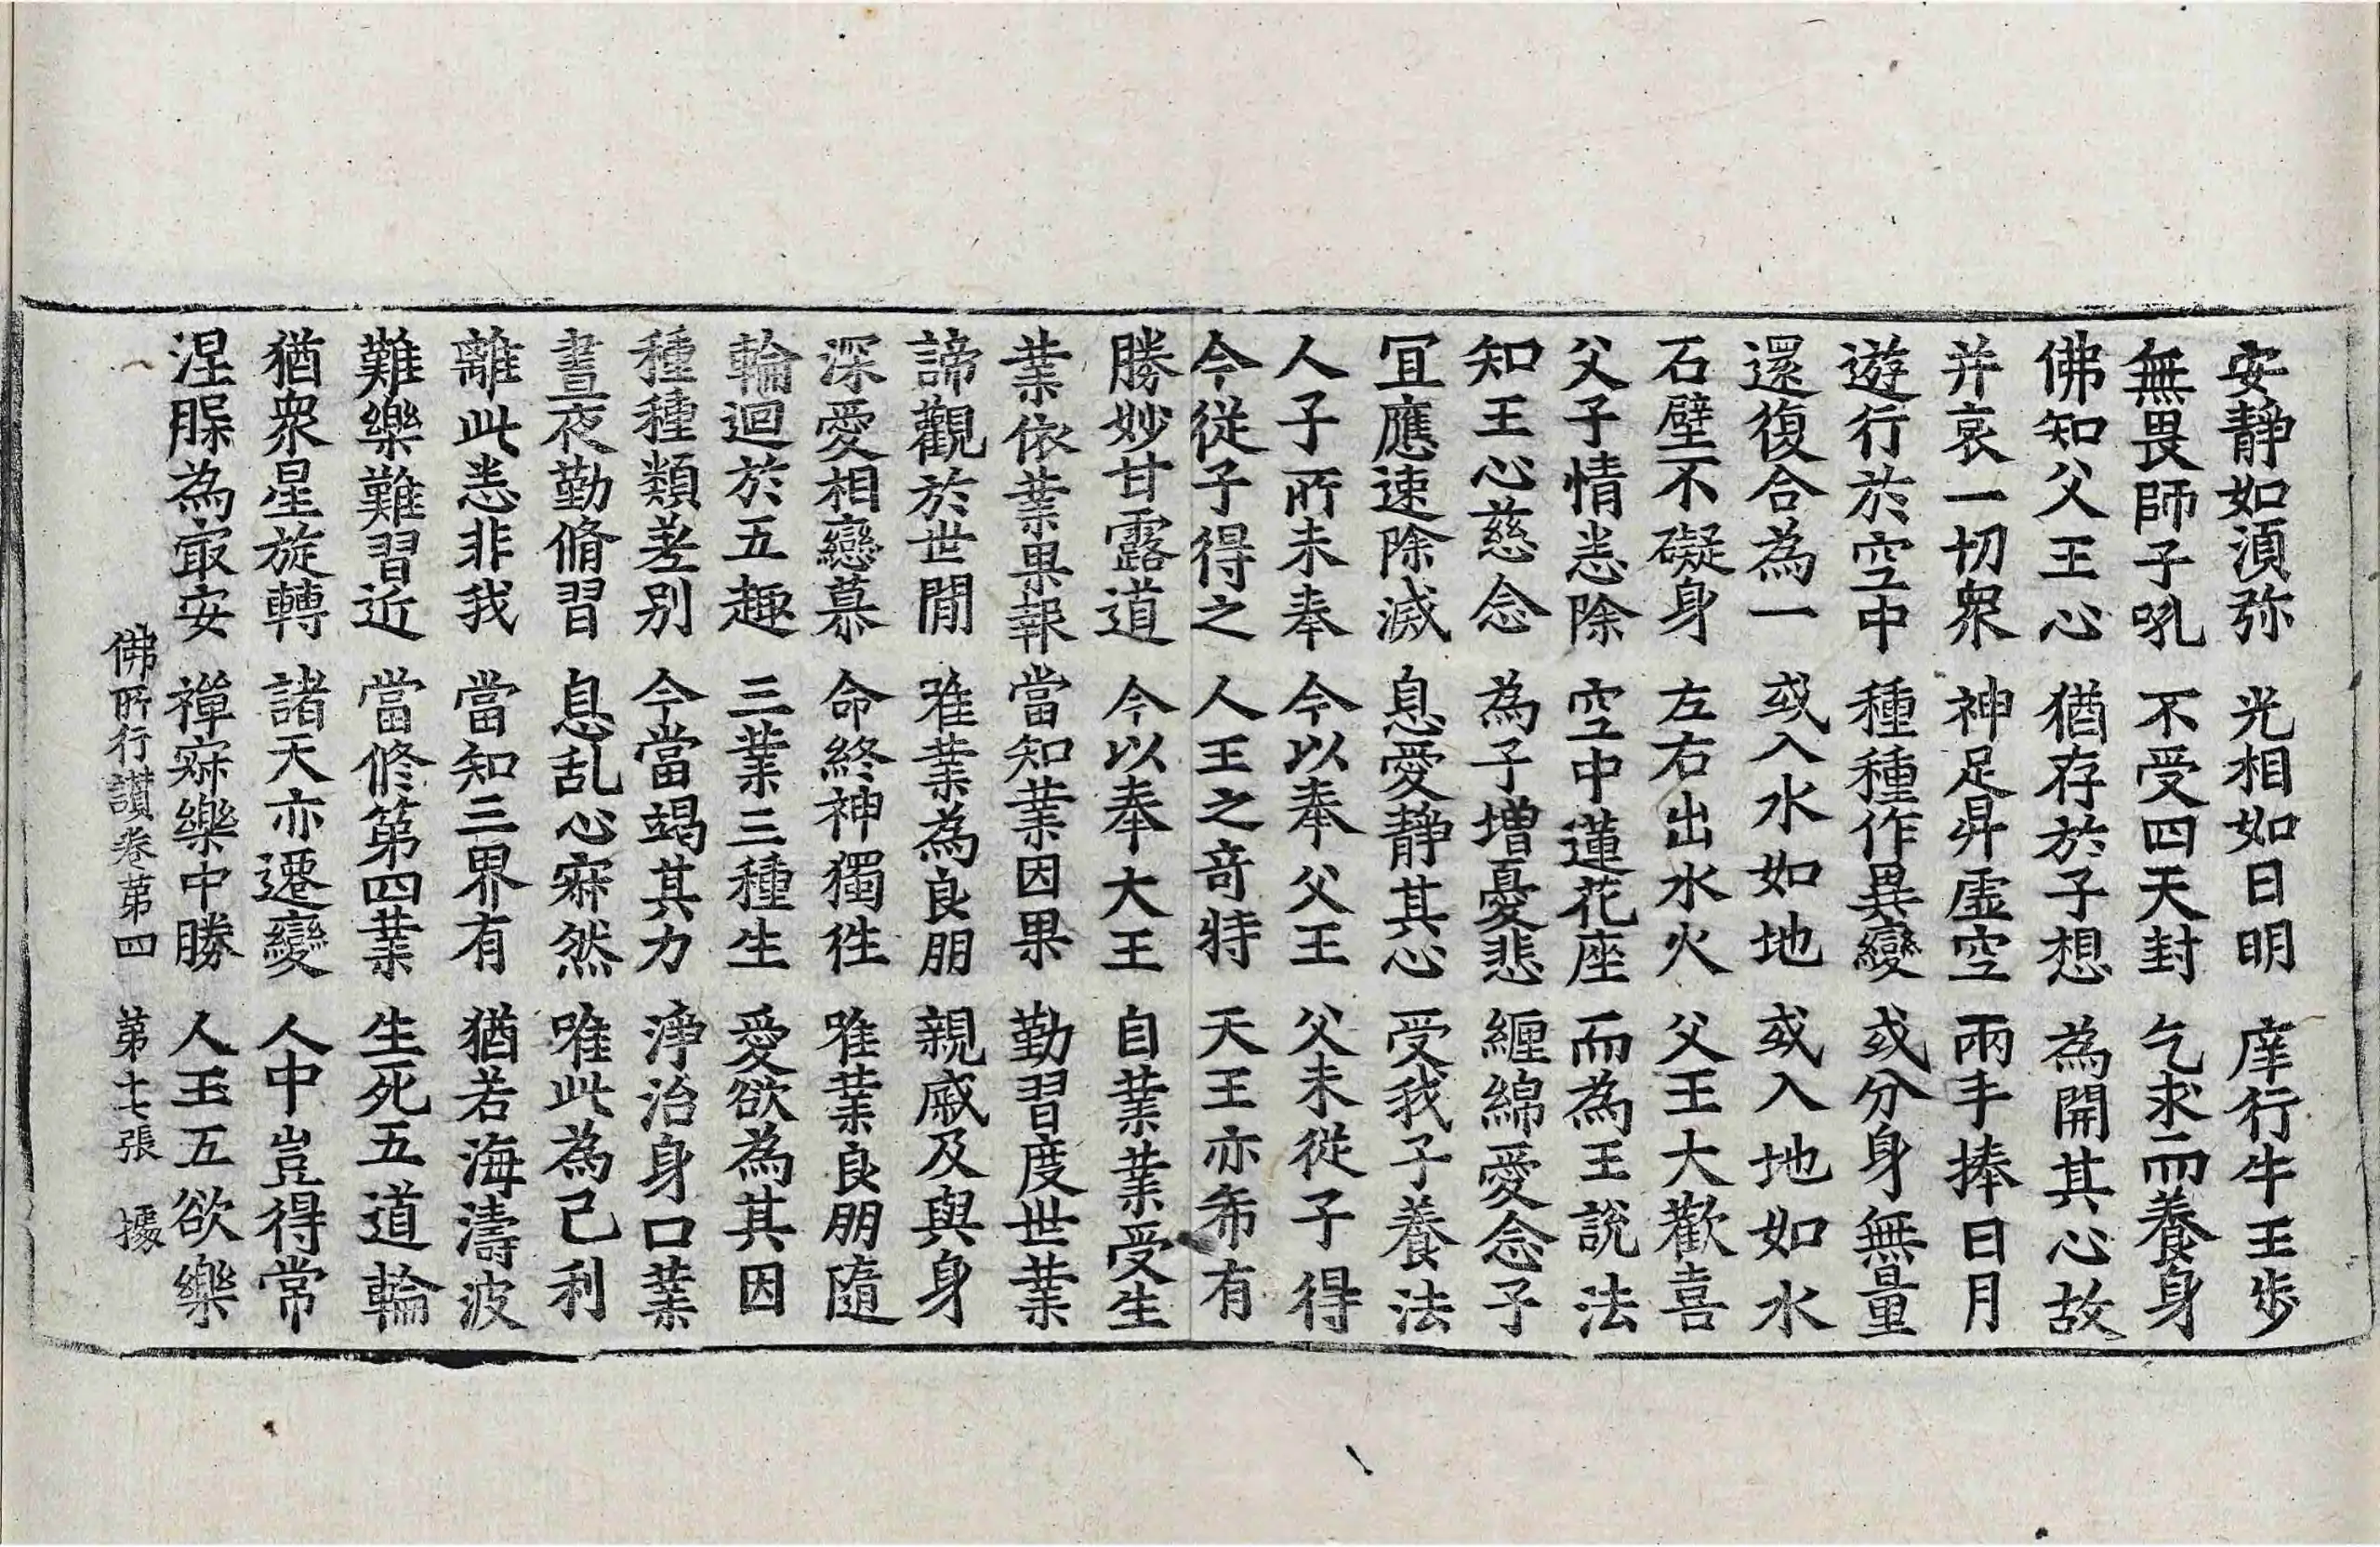 安靜如湏弥　光相如日明　庠行牛王步
無畏師子吼　不受四天封　乞求而養身
佛知父王心　猶存於子想　為開其心故
并哀一切衆　神足昇虛空　兩手捧日月
遊行於空中　種種作異變　或分身無量
還復合為一　或入水如地　或入地如水
石壁不礙身　左右出水火　父王大歡喜
父子情悉除　空中蓮花座　而為王說法
知王心慈念　為子增憂悲　纏綿愛念子
冝應速除滅　息愛靜其心　受我子養法
人子所未奉　今以奉父王　父未從子得
今從子得之　人王之竒特　天王亦希有
勝妙甘露道　今以奉大王　自業業受生
業依業果報　當知業因果　勤習度世業
諦觀於世閒　唯業為良朋　親戚及與身
深愛相戀慕　命終神獨徃　唯業良朋隨
輪迴於五趣　三業三種生　愛欲為其因
種種類差別　今當竭其力　淨治身口業
晝夜勤脩習　息乱心寂然　唯此為己利
離此悉非我　當知三界有　猶若海濤波
難樂難習近　當修第四業　生死五道輪
猶衆星旋轉　諸天亦遷變　人中豈得常
涅槃為㝡安　禪寂樂中勝　人王五欲樂
佛所行讃卷第四　第十七張　據